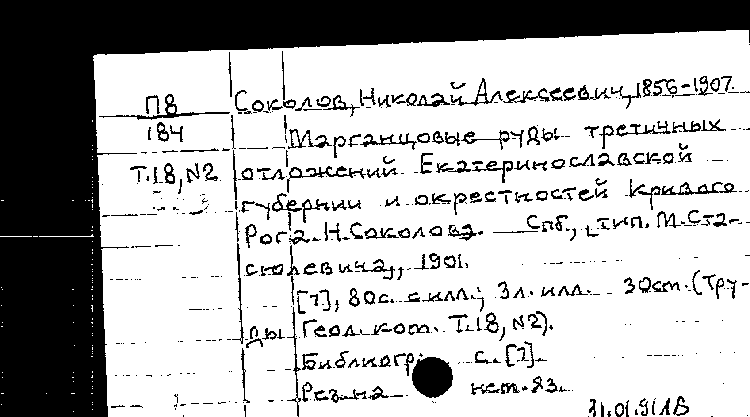 П8 Соколов, Николай Алексеевич, 1856-1907
184 Марганцовые руды третичных
Т.18, N2 отложений Екатеринославской
губернии и окрестностей Кривого
Рога. Н. Соколова. Спб., тип. М. Ста-
сюлевича, 1901.
[7], 80с. с илл.; 3л. илл. 30см. (Тру-
ды Геол. ком. Т.18, N2).
Библиогр: с. [7].
Рез. на нем. яз.